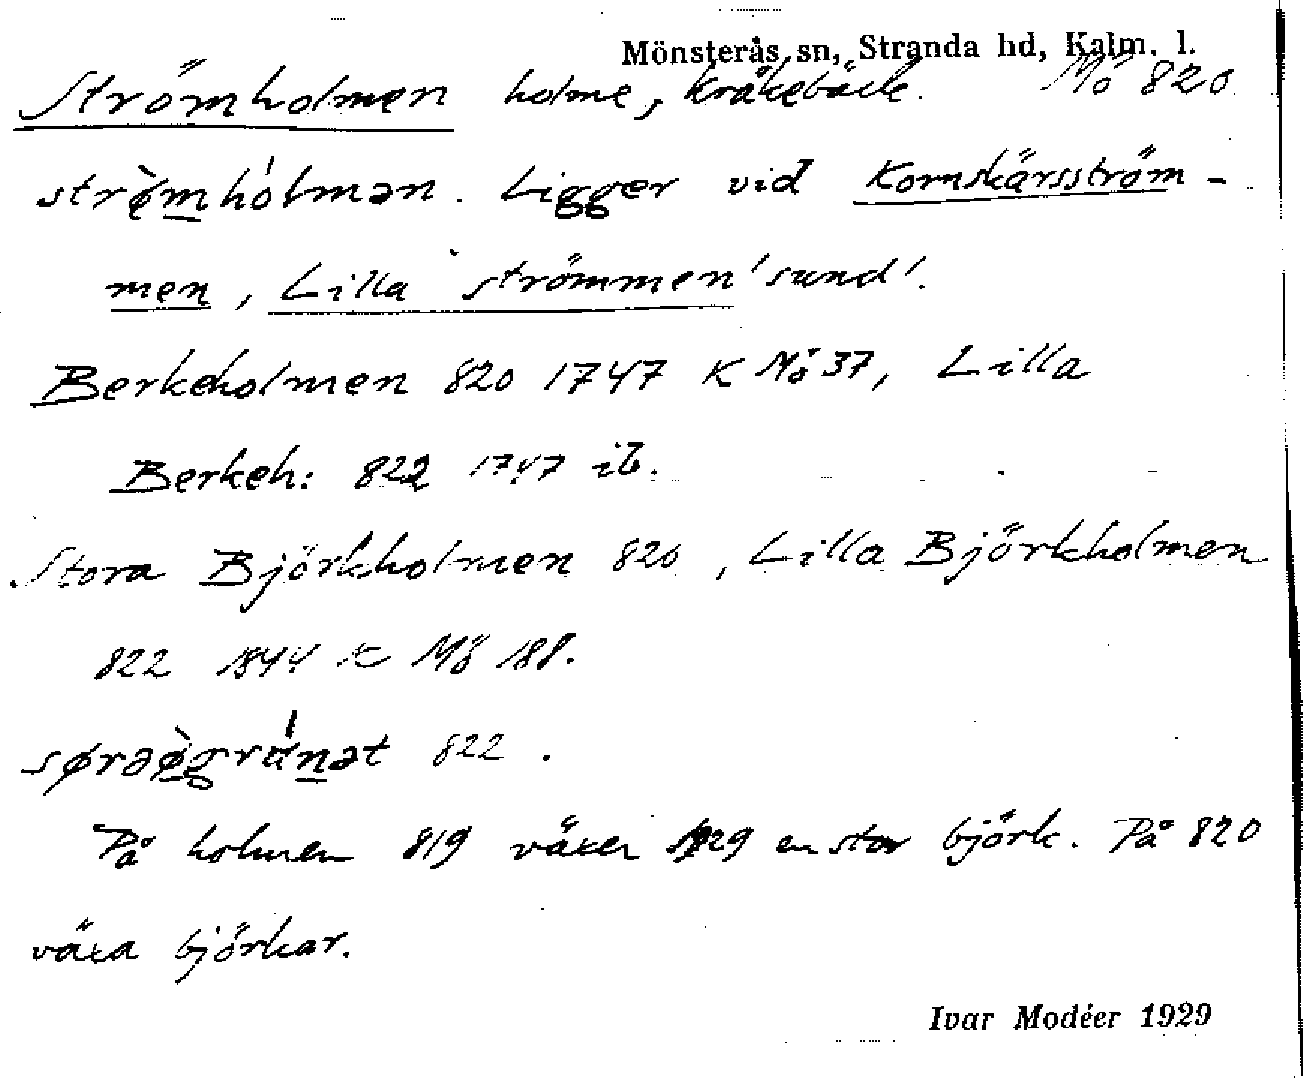 Mönsterås sn, Stranda hd, Kalm. l.
Strömholmen holme, Kråkebäck. Mö 820
strø̀mhólmən. Ligger vid Kornskärsström-
men, Lilla strömmen 'sund'.
Berkeholmen 820 1747 K Mö 37, Lilla
Berkeh: 822 1747 ib.
Stora Björkholmen 820, Lilla Björkholmen
822 1844 K Mö 188.
822.
På holmen 819 växer 1929 en stor björk. På 820
växa björkar.
Ivar Modéer 1929